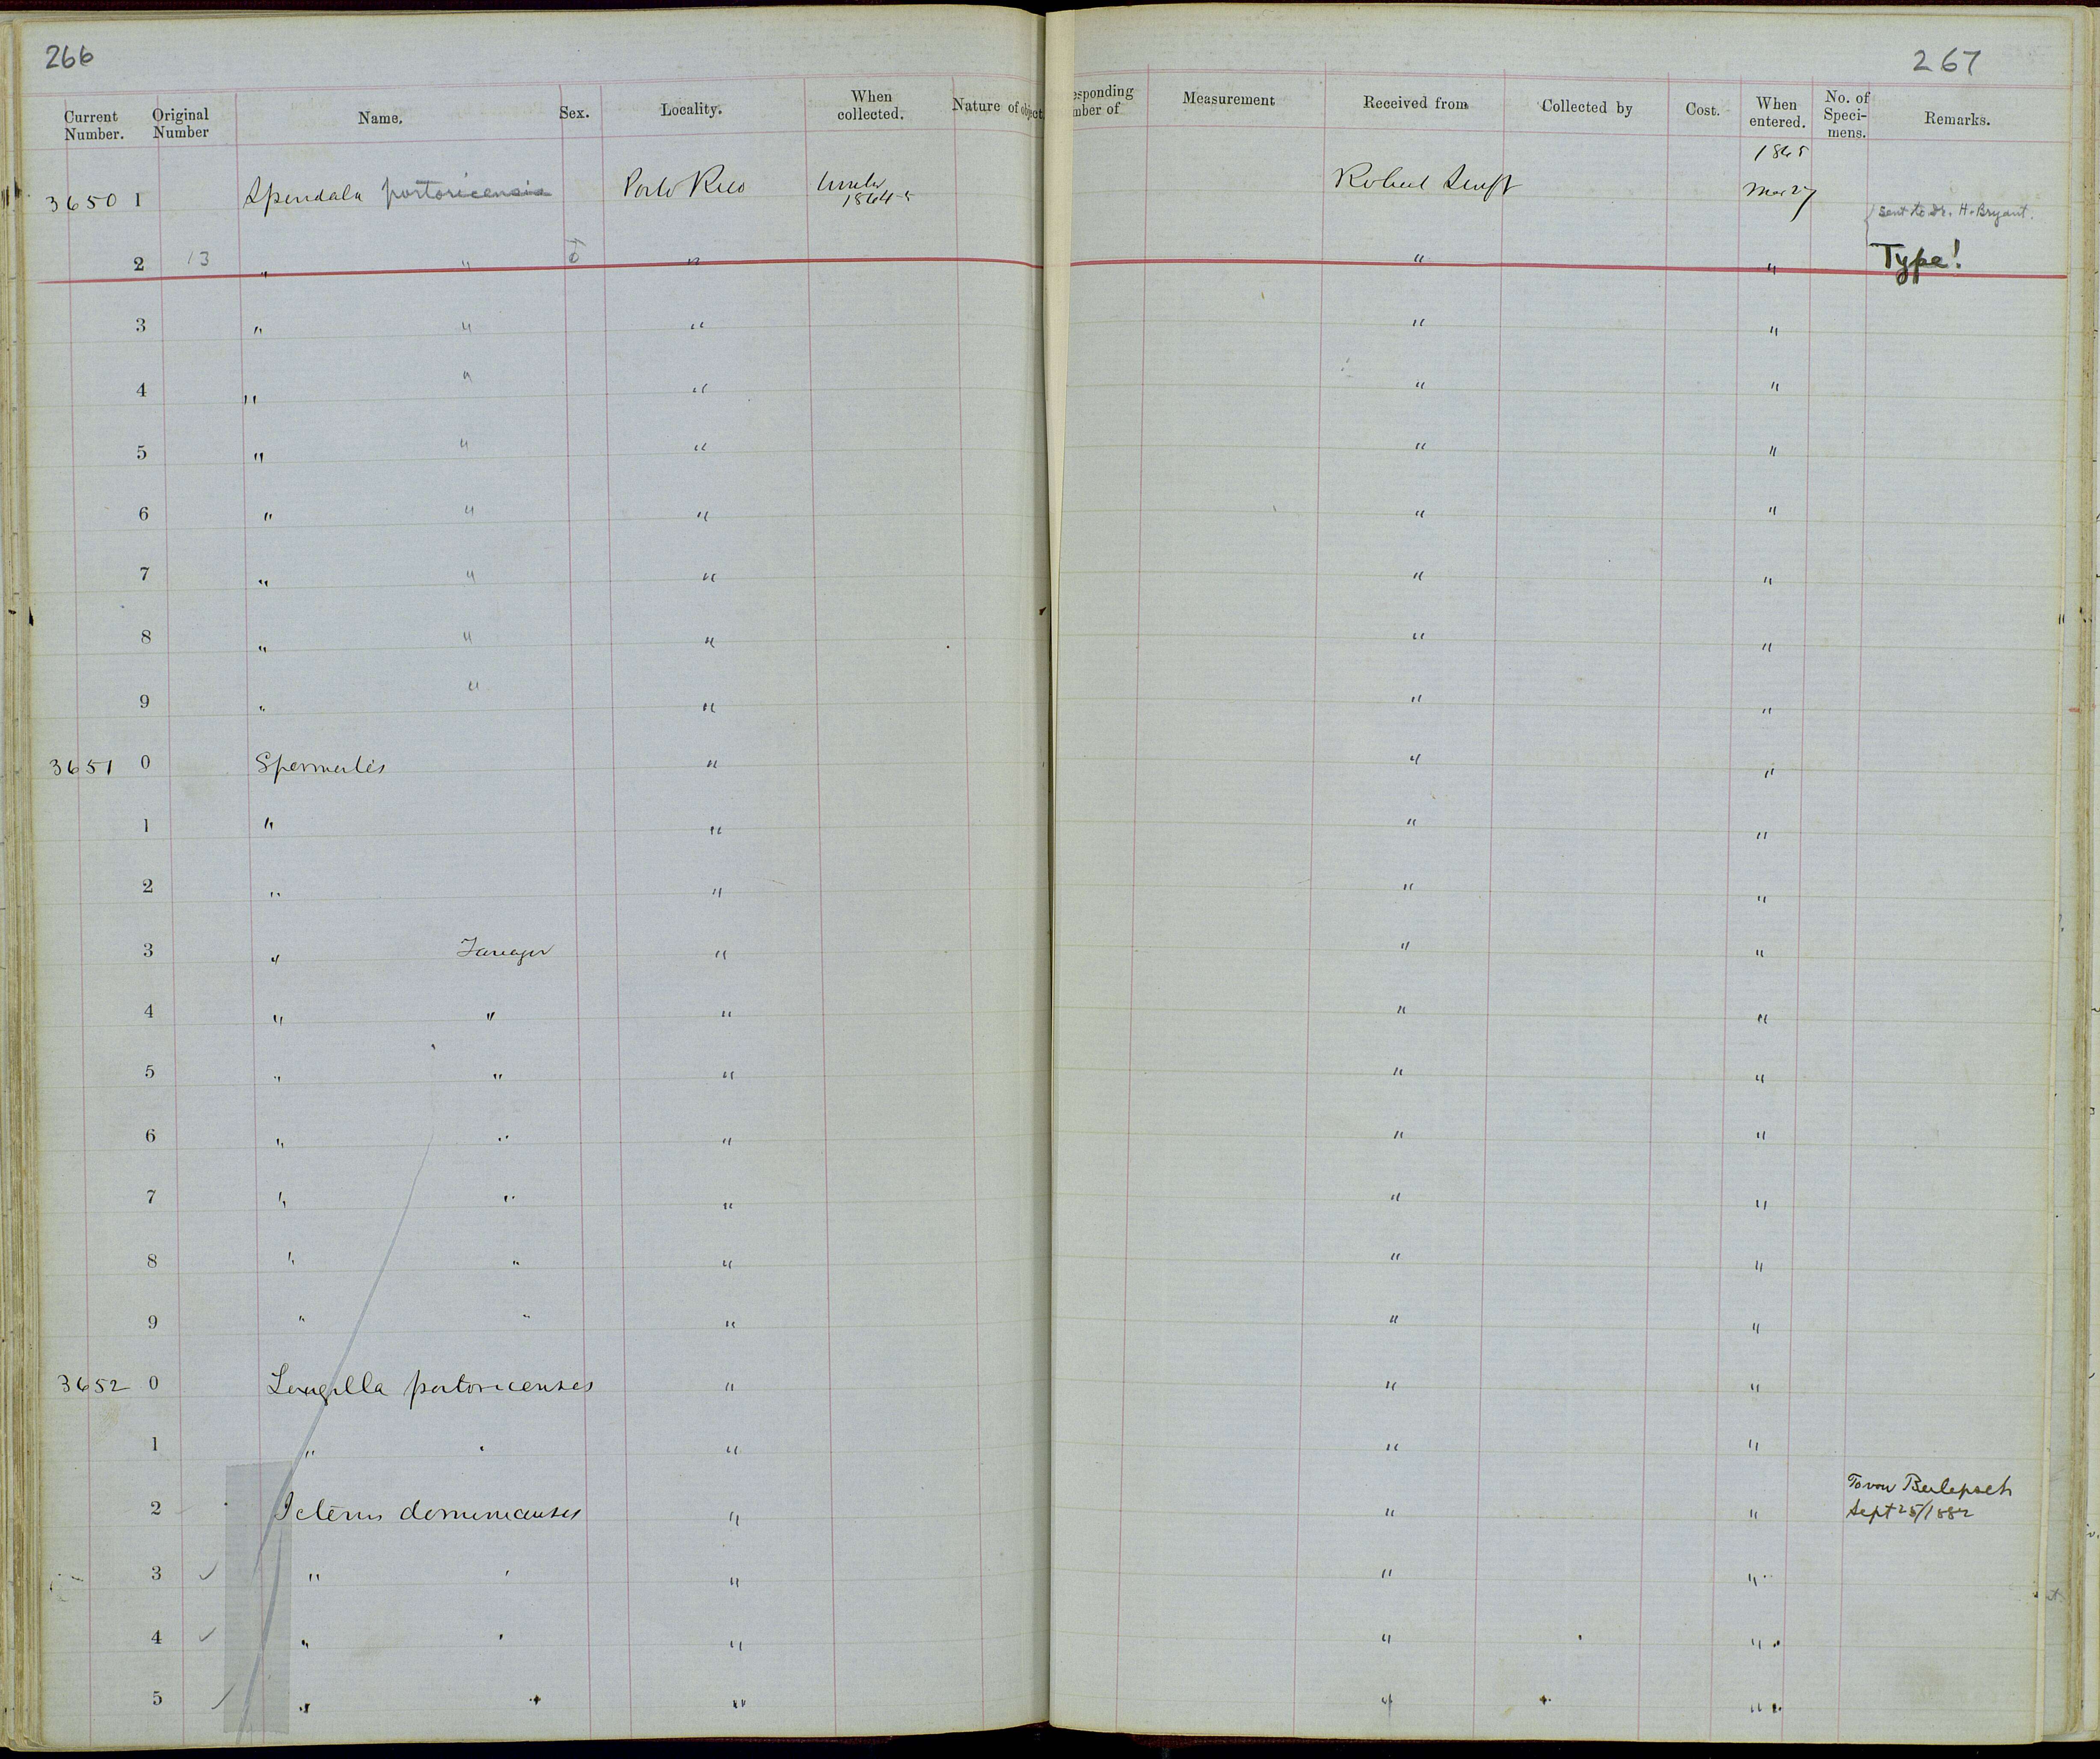 266
267
Current Number. Original Number Name. Sex. Locality. When collected. Nature of object. esponding mber of Measurement Received from Collected by Cost. When entered. No. of Speci-mens. Remarks.
1865
36501 Spindalis portoricensis Porto Rico Winter 1864-5 Robert Swift Mar 27
{ Sent to Dr. H. Bryant.
2 13 " " " " " Type!
3 " " " " "
4 " " " " "
5 " " " " "
6 " " " " "
7 " " " " "
8 " " " " "
9 " " " " "
3651 0 " " "
1 " " " "
2 " " " "
3 " Tanager " " "
4 " " " " "
5 " " " " "
6 " " " " "
7 " " " " "
8 " " " " "
9 " " " " "
3652 0 portoricensis " " "
1 " " " " "
2 Icterus dominicensis " " " To von Berlepsch Sept 25/1882
3 ✓ " " " " "
4 ✓ " " " " "
5 ✓ " " " " "